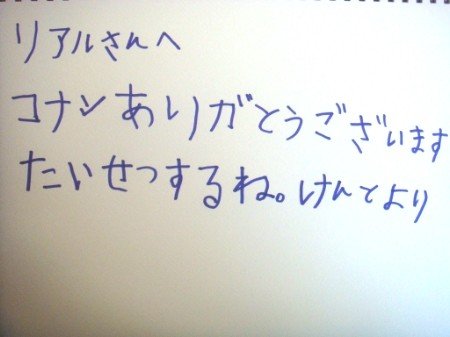 リアルさんへ
コナンありがとうございます
たいせつするね。けんとより